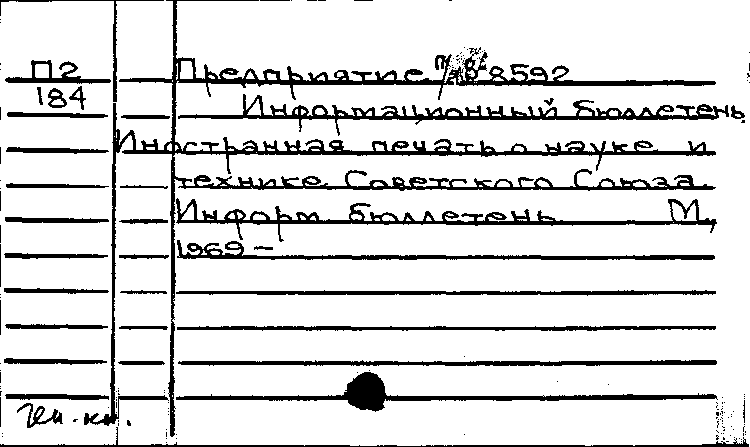 П2 Предприятие п/я 8592
184 Информационный бюллетень
Иностранная печать о науке и
технике Советского Союза.
Информ. бюллетень. М.,
1969 –